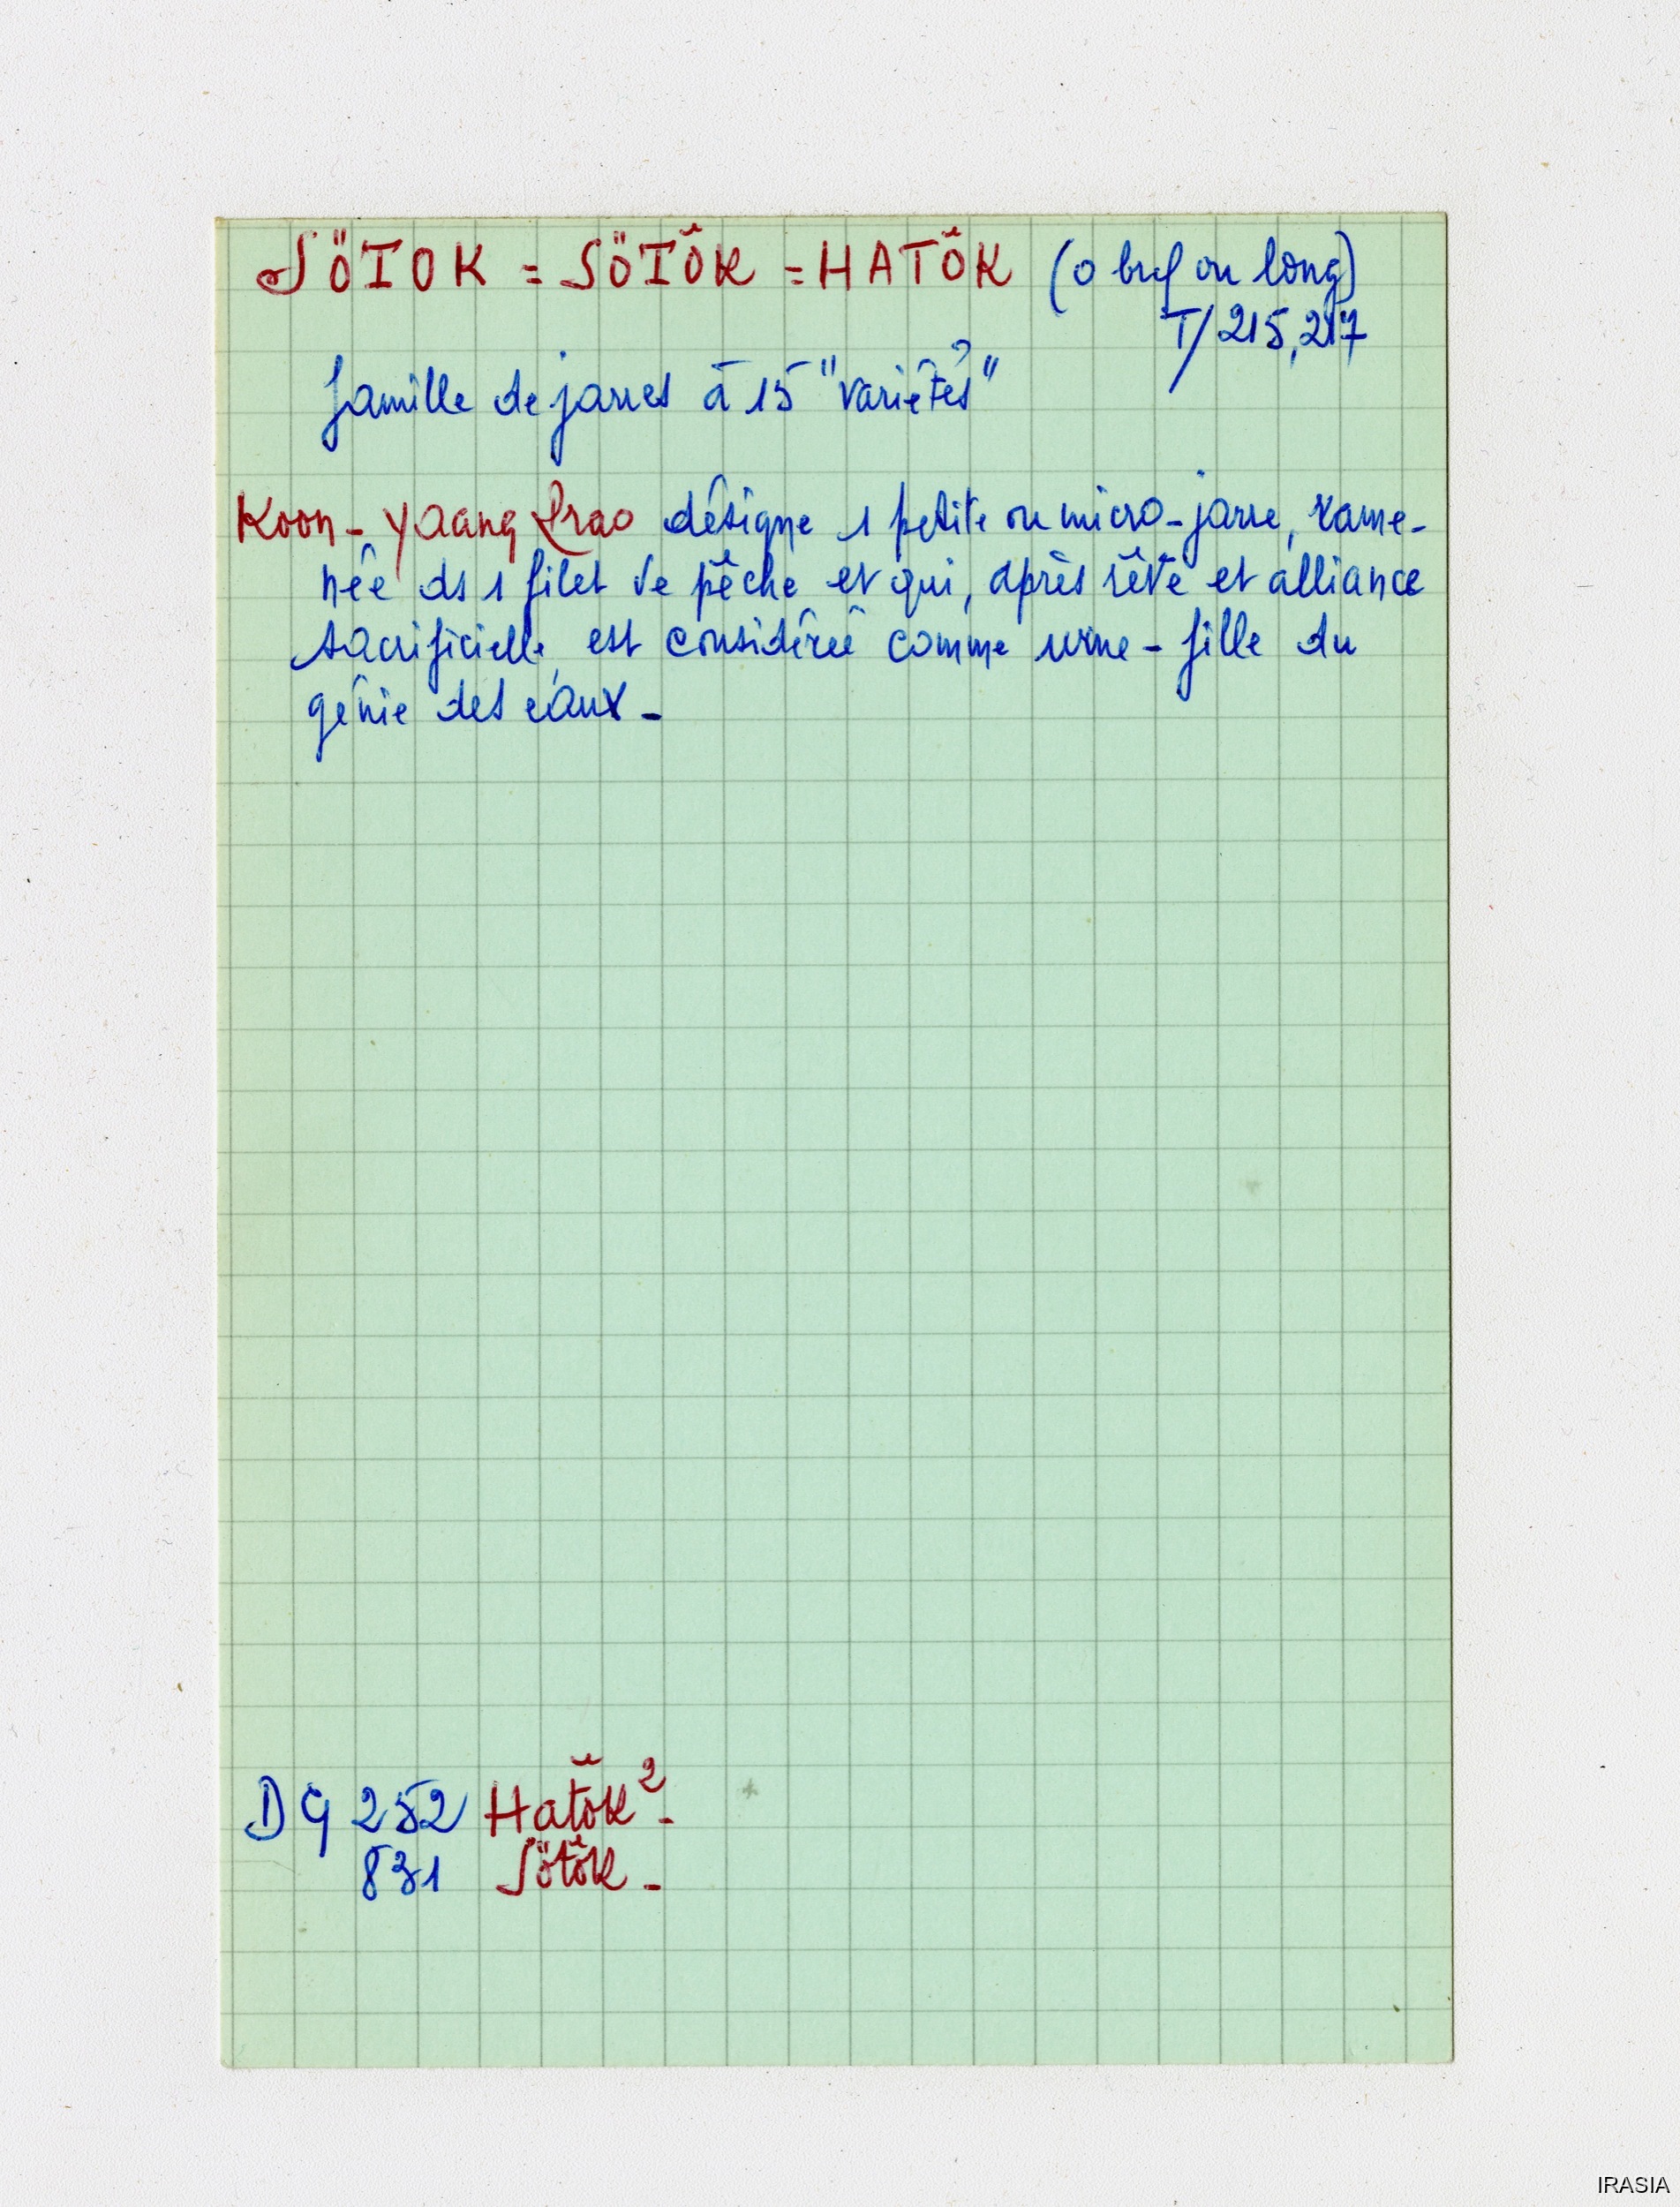 SÖTOK = SÖTŎK = HATŎK (o bref ou long)
T/215,217
famille de jarres à 15 "variétés"
Koon-yaang Drao désigne 1 petite ou micro-jarre, rame-
née ds 1 filet de pêche et qui, après rêve et alliance
sacrificielle, est considérée comme urne-fille du
génie des eaux-
DG 252 Hatŏk²-
831 Sötŏk-
IRASIA